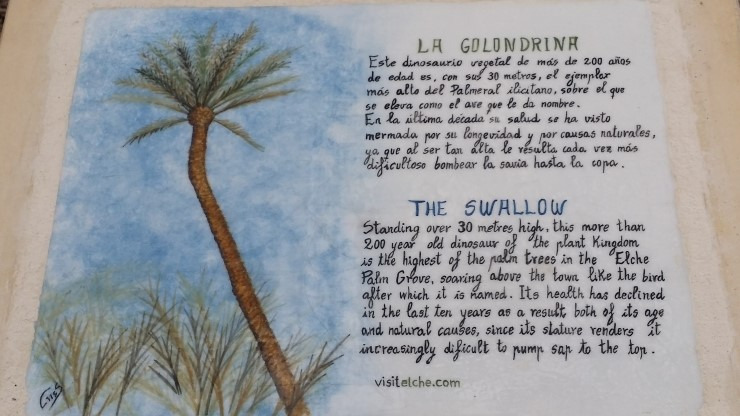 LA GOLONDRINA
Este dinosaurio vegetal de más de 200 años
de edad es, con sus 30 metros, el ejemplar
más alto del Palmeral ilicitano, sobre el que
se eleva como el ave que le da nombre.
En la última década su salud se ha visto
mermada por su longevidad y por causas naturales,
ya que al ser tan alta le resulta cada vez más
dificultoso bombear la savia hasta la copa.
THE SWALLOW
Standing over 30 metres high, this more than
200 year old dinosaur of the plant Kingdom
is the highest of the palm trees in the Elche
Palm Grove, soaring above the town like the bird
after which it is named. Its health has declined
in the last ten years as a result both of its age
and natural causes, since its stature renders it
increasingly dificult to pump sap to the top.
visitelche.com